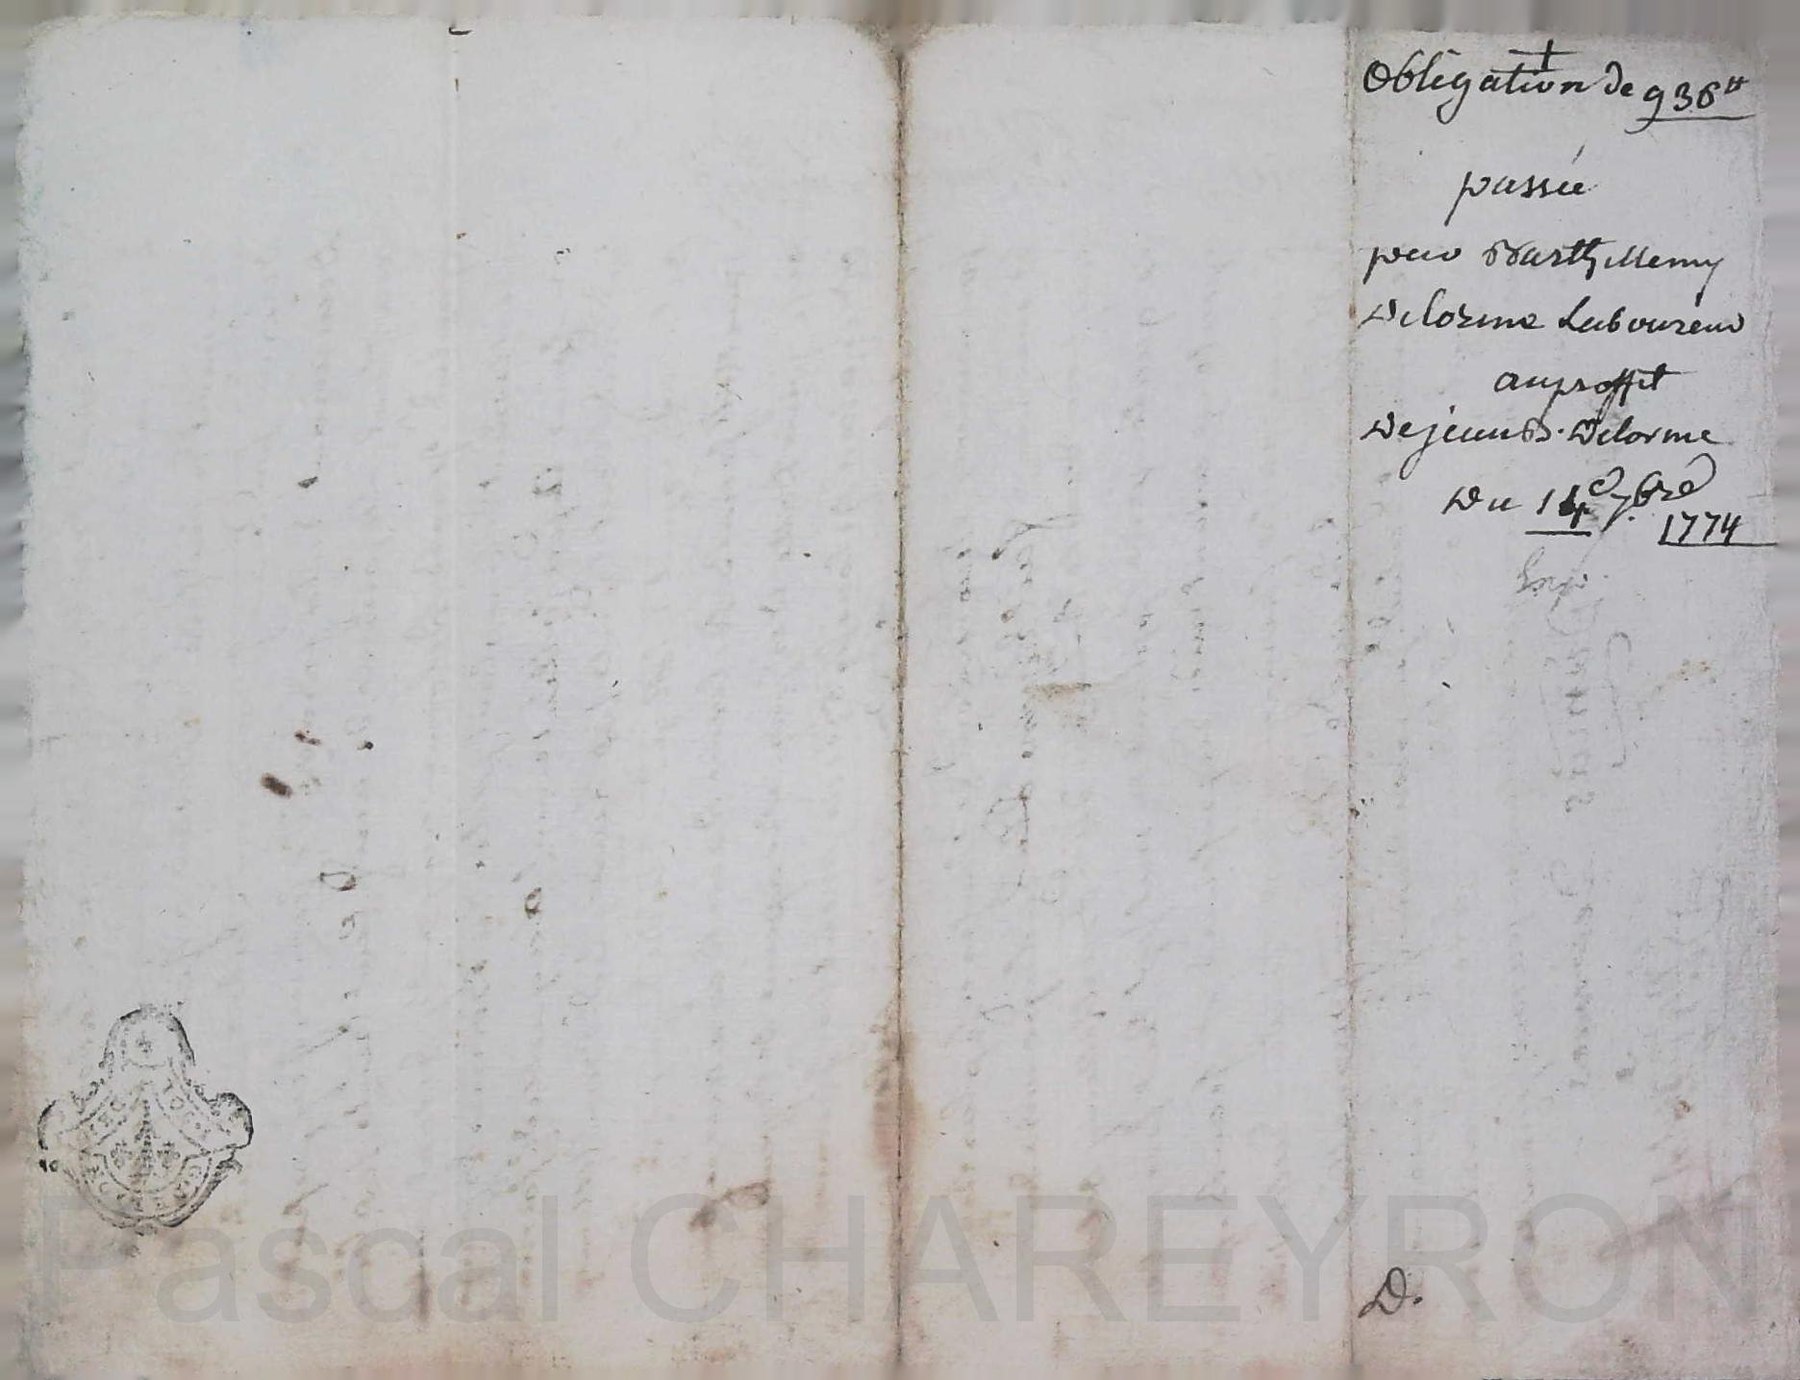 Obligation de 936tt
passée
par Barthellemy
Delorme Laboureur
au proffit
De jean B. Delorme
Du 14e 7bre
1774
D.
Pascal CHAREYRON